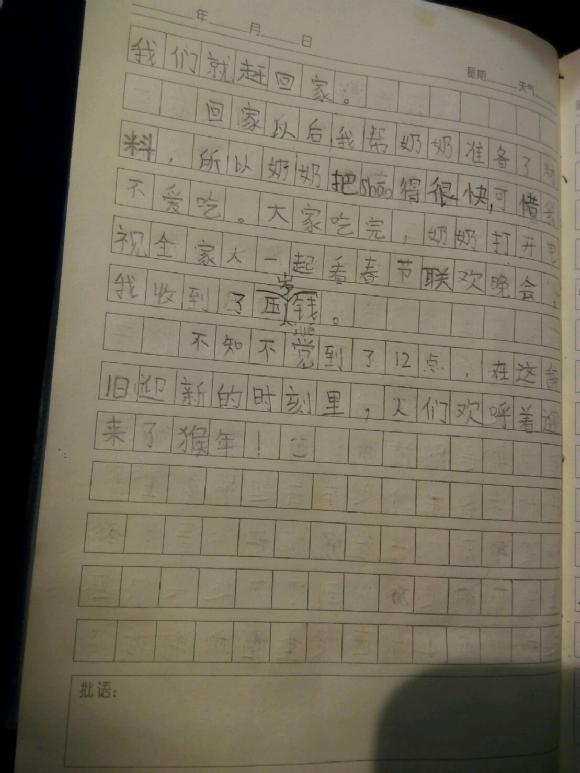 年 月 日
星期 天气
我们就赶回家。
回家以后,我帮奶奶准备了
料,所以奶奶把shāo得很快,可惜
不爱吃。大家吃完,奶奶打开电
视全家人一起看春节联欢晚会
我收到了压岁钱。
不知不觉到了12点,在这辞
旧迎新的时刻里,人们欢呼着迎
来了猴年!
批语: